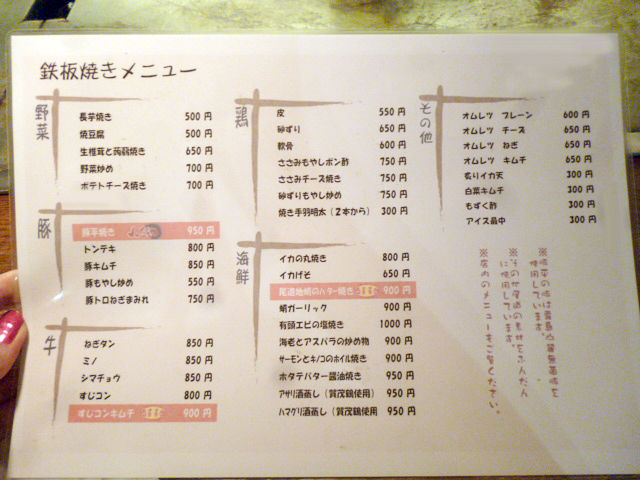 鉄板焼きメニュー
野菜
長芋焼き 500 円
焼豆腐 500 円
生椎茸と蒟蒻焼き 650 円
野菜炒め 700 円
ポテトチーズ焼き 700 円
豚
豚平焼き 950 円
トンテキ 800 円
豚キムチ 850 円
豚もやし炒め 550 円
豚トロねぎまみれ 750 円
牛
ねぎタン 850 円
ミノ 850 円
シマチョウ 850 円
すじコン 800 円
すじコンキムチ 900 円
鶏
皮 550 円
砂ずり 650 円
軟骨 600 円
ささみもやしポン酢 750 円
ささみチーズ焼き 750 円
砂ずりもやし炒め 750 円
焼き手羽明太（2本から） 300 円
海鮮
イカの丸焼き 800 円
イカげそ 650 円
尾道地蛸のバター焼き 900 円
蛸ガーリック 900 円
有頭エビの塩焼き 1000 円
海老とアスパラの炒め物 900 円
サーモンとキノコのホイル焼き 900 円
ホタテバター醤油焼き 950 円
アサリ酒蒸し（賀茂鶴使用） 950 円
ハマグリ酒蒸し（賀茂鶴使用 950 円
その他
オムレツ プレーン 600 円
オムレツ チーズ 650 円
オムレツ ねぎ 650 円
オムレツ キムチ 650 円
炙りイカ天 300 円
白菜キムチ 300 円
もずく酢 300 円
アイス最中 300 円
使用しています。
に使用しています。
※店内のメニューもご覧ください。